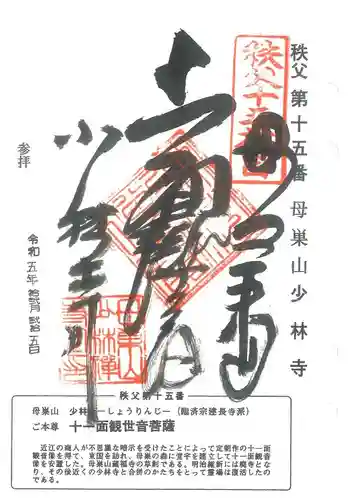 秩父 第十五番 母巣山 少林寺
秩父十五番
母巣山
十一面観音
少林寺
参拝
令和 五年 拾弐月 弐拾五日
秩父第十五番
母巣山 少林 ーしょうりんじー (臨済宗建長寺派)
ご本尊 十一面観世音菩薩
近江の商人が不思議な暗示を受けたことによって定朝作の十一面
観音像を得て、東国を訪れ、母巣の森に堂宇を建立して十一面観音
像を安置した。母巣山蔵福寺の草創である。明治維新には廃寺とな
り、その後近くの少林寺と合併のかたちをとって霊場は復活したの
である。